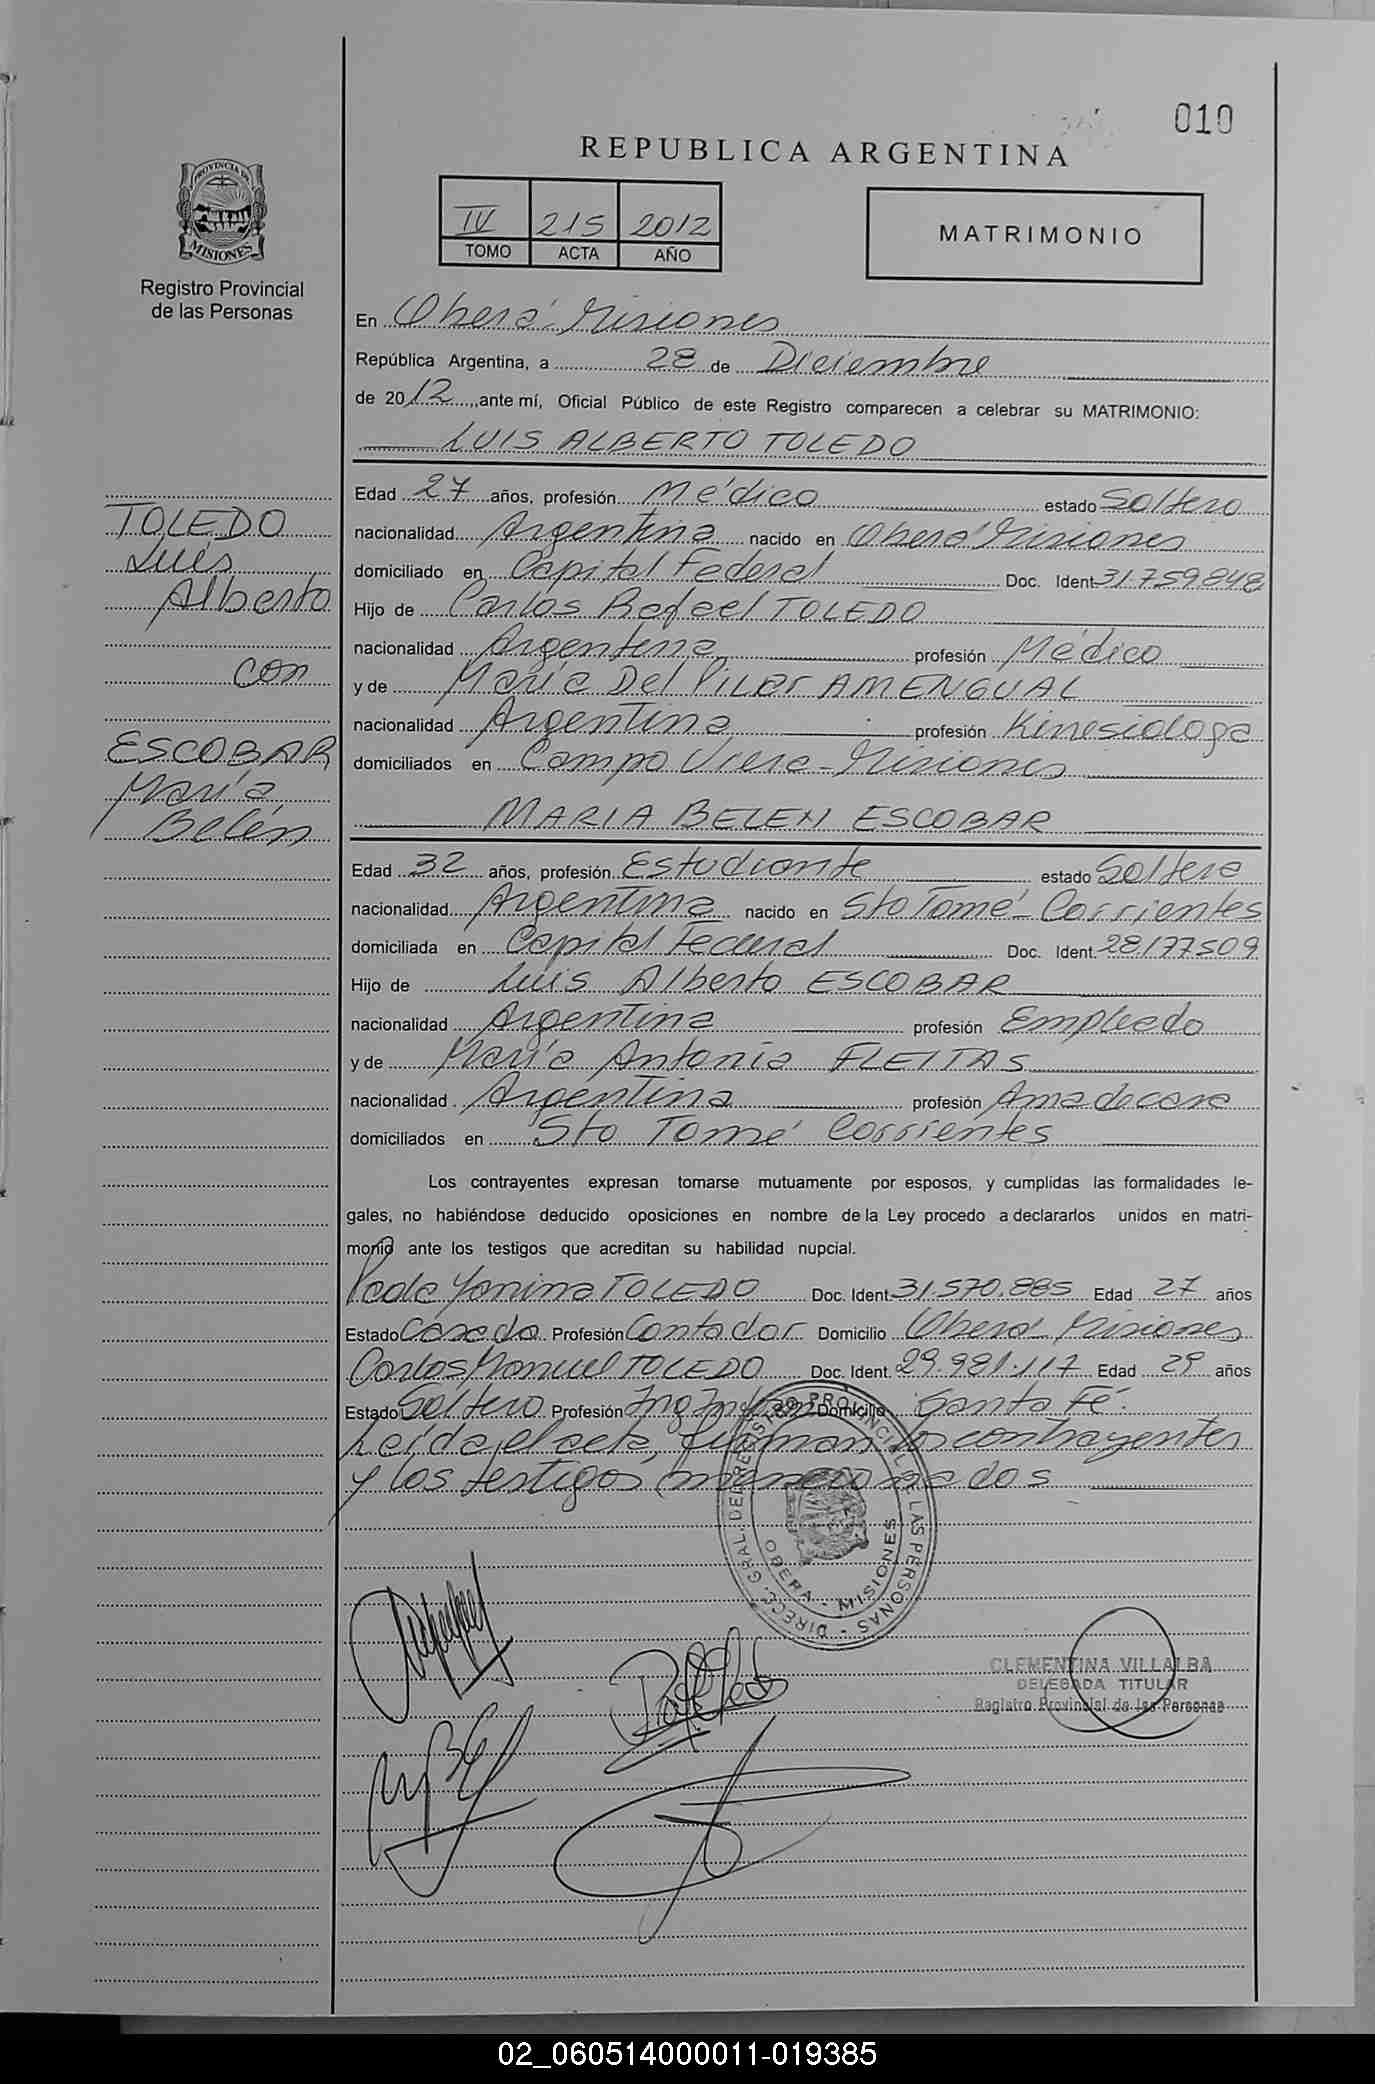 010
REPUBLICA ARGENTINA
PROVINCIA DE
MISIONES
Registro Provincial
de las Personas
IV 215 2012
TOMO ACTA AÑO
MATRIMONIO
En Oberá Misiones
República Argentina, a 28 de Diciembre
de 2012, ante mí, Oficial Público de este Registro comparecen a celebrar su MATRIMONIO:
LUIS ALBERTO TOLEDO
Edad 27 años, profesión Médico estado Soltero
nacionalidad Argentina nacido en Oberá Misiones
domiciliado en Capital Federal Doc. Ident 31.759.848
Hijo de Carlos Rafael TOLEDO
nacionalidad Argentina profesión Médico
y de María Del Pilar AMENGUAL
nacionalidad Argentina profesión Kinesiologa
domiciliados en Campo Viera - Misiones
MARIA BELEN ESCOBAR
Edad 32 años, profesión Estudiante estado Soltera
nacionalidad Argentina nacido en Sto Tomé - Corrientes
domiciliada en Capital Federal Doc. Ident. 28.177.509
Hijo de Luis Alberto ESCOBAR
nacionalidad Argentina profesión Empleado
y de María Antonia FLEITAS
nacionalidad Argentina profesión Ama de casa
domiciliados en Sto Tomé Corrientes
TOLEDO
Luis
Alberto
con
ESCOBAR
María
Belén
Los contrayentes expresan tomarse mutuamente por esposos, y cumplidas las formalidades le-
gales, no habiéndose deducido oposiciones en nombre de la Ley procedo a declararlos unidos en matri-
monio ante los testigos que acreditan su habilidad nupcial.
Yanina TOLEDO Doc. Ident. 31.570.885 Edad 27 años
Estado Casada Profesión Contador Domicilio Oberá - Misiones
Carlos Manuel TOLEDO Doc. Ident. 29.981.117 Edad 29 años
Estado Soltero Profesión Ing Domicilio Santa Fé.
Leída el acta, firman los contrayentes
y los testigos mencionados
DIRECC. GRAL. DEL REGISTRO PROVINCIAL DE LAS PERSONAS
OBERA - MISIONES
CLEMENTINA VILLALBA
DELEGADA TITULAR
Registro Provincial de las Personas
02_060514000011-019385